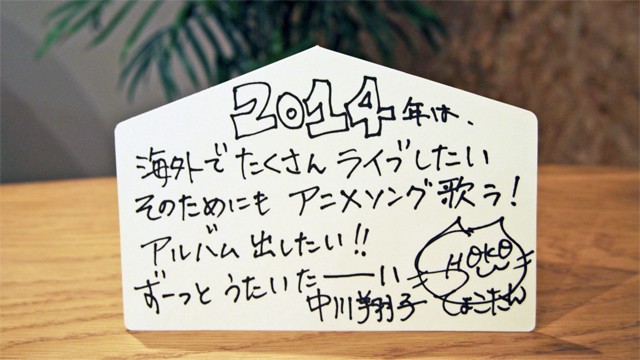 2014年は、
海外でたくさんライブしたい
そのためにもアニメソング歌う!
アルバム出したい!!
ずーっとうたいたーーい
中川翔子
SHOKO
しょこたん